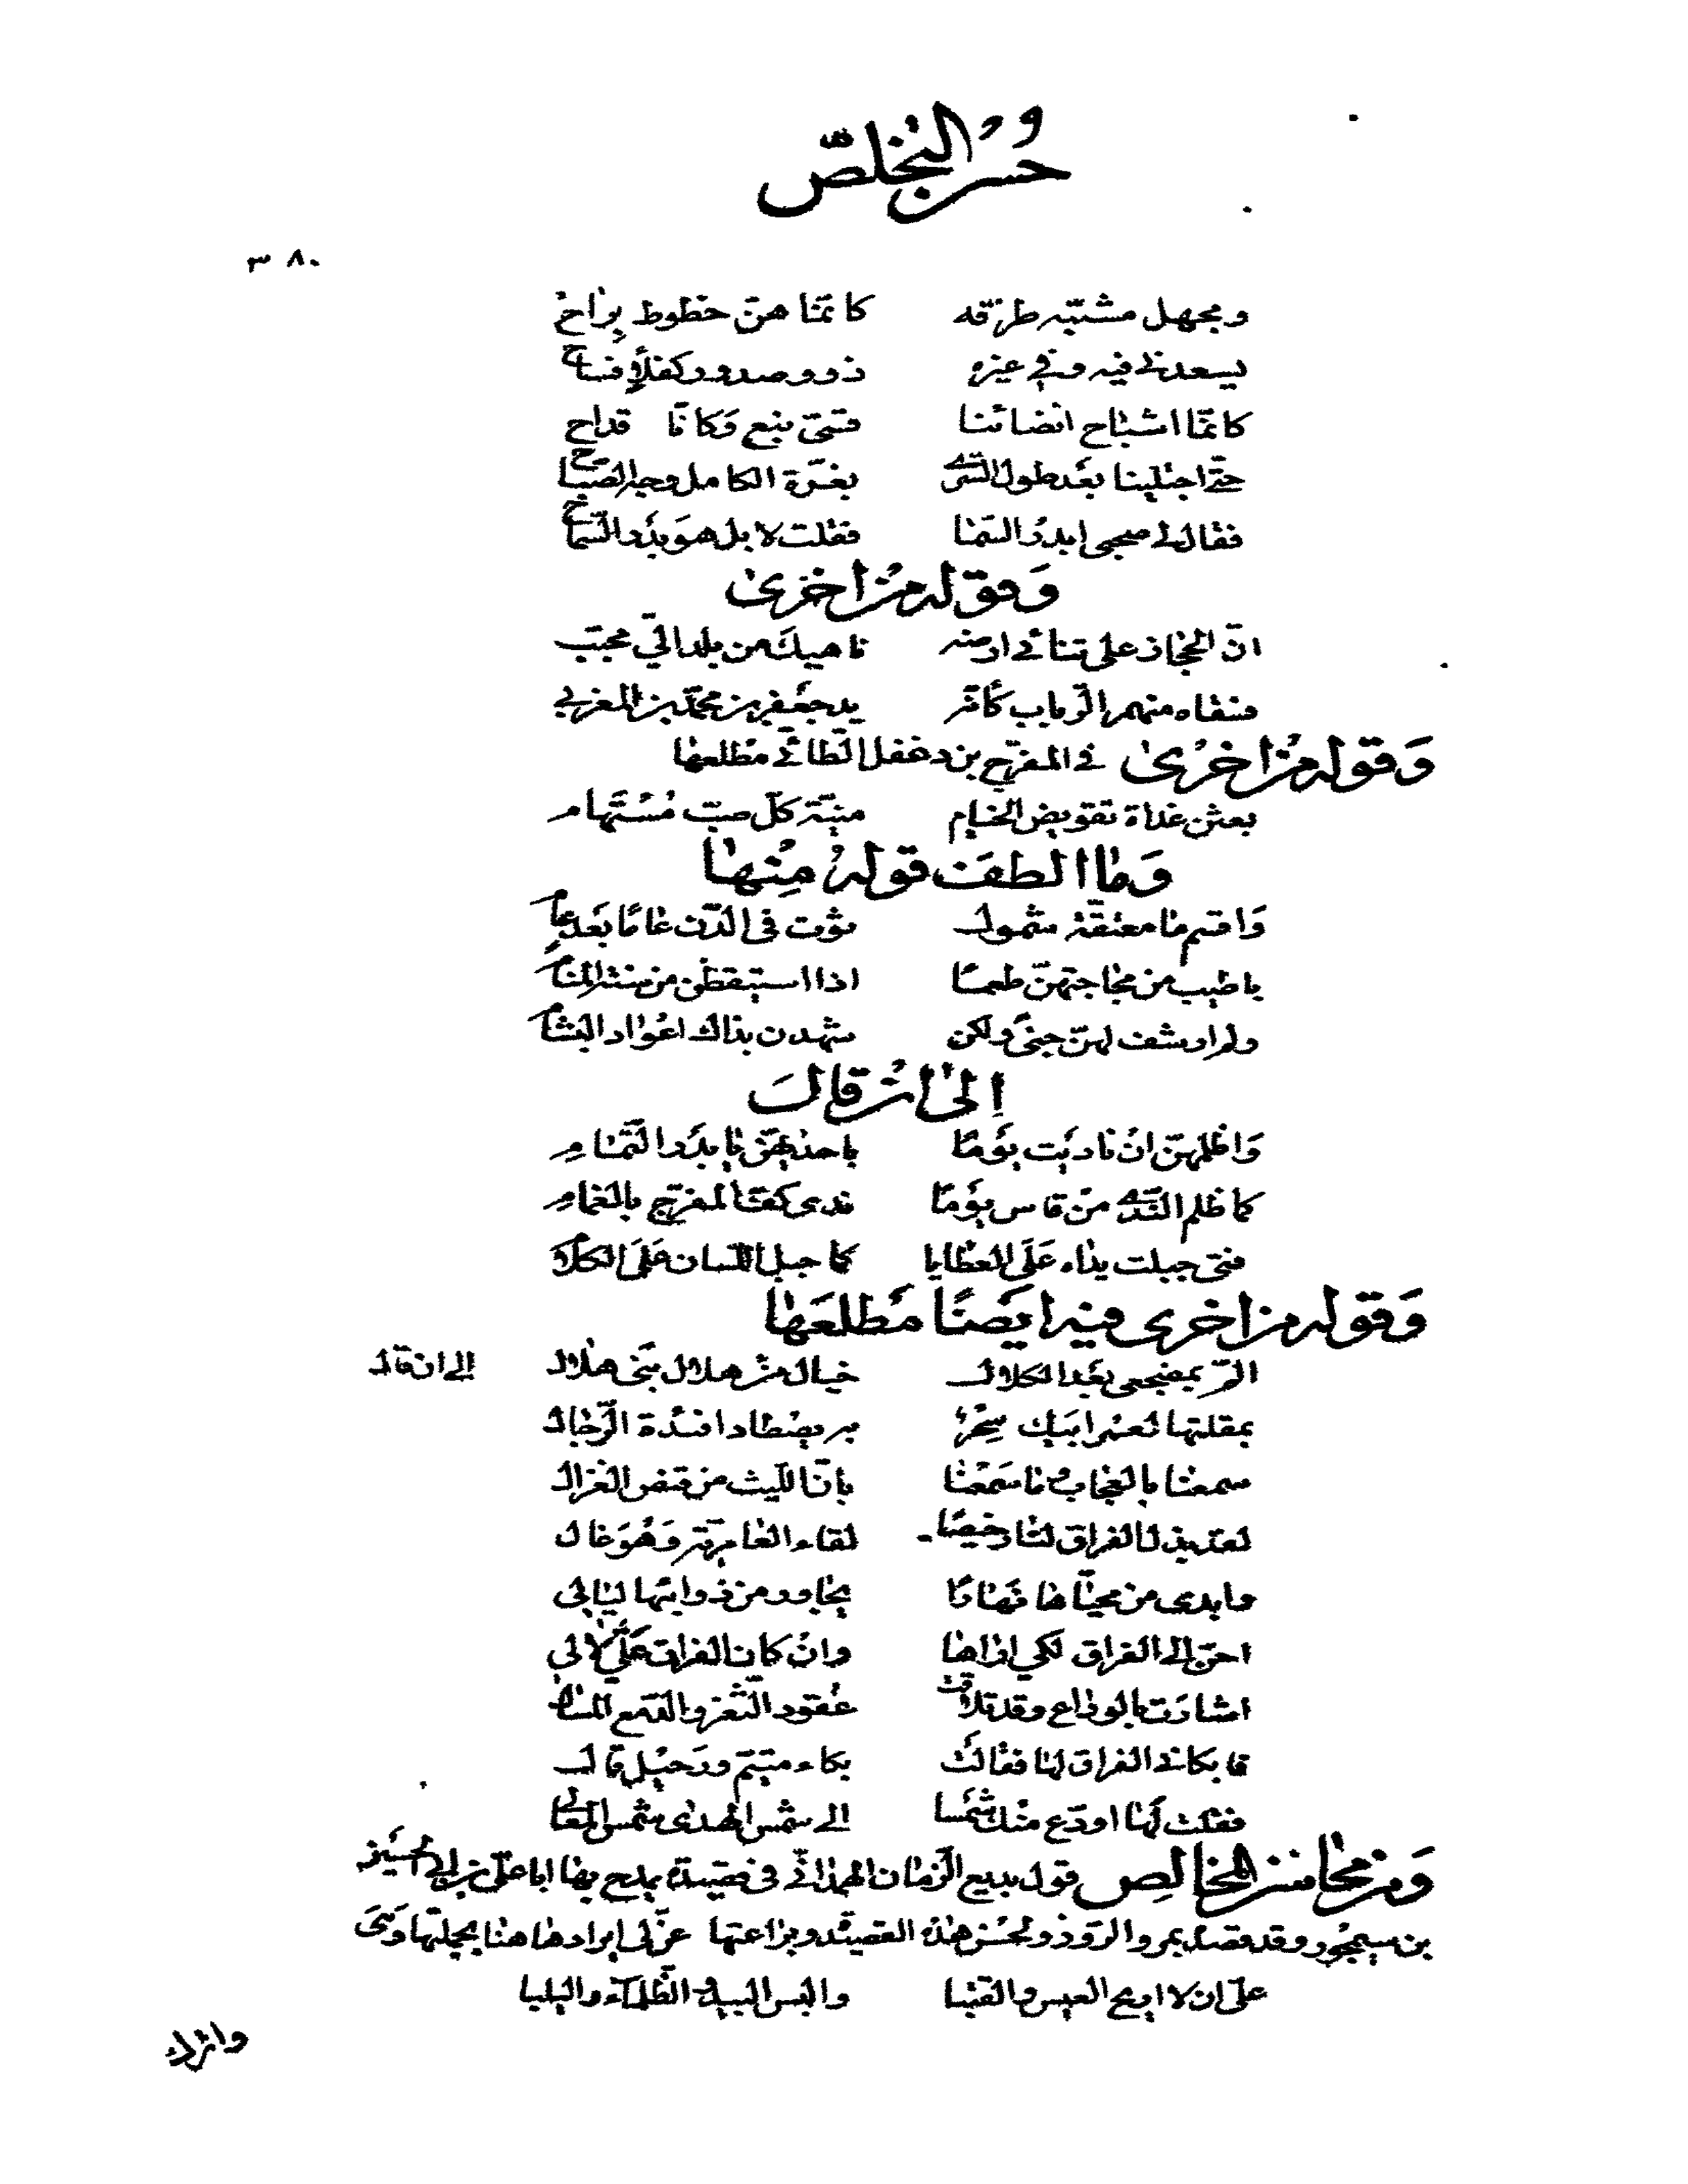 حسن التخلص
٣٨٠
ومجهل مشتبه طرقه كانما هن خطوط براح
يسعدني فيه وفي غيره ذوو صدور كفلا فساح
كانما اشباح انضائنا قسي نبع وكانا قداح
حتى اجتلينا بعد طول السرى بغرة الكامل وجه الصباح
فقال لي صحبي ابدر السما فقلت لا بل هو بدر السماح
وقوله من اخرى
ان الحجاز على تنائي ارضه ناهيك من بلد الي محبب
فسقاه منهمر الرباب كأنه يد جعفر بن محمد بن المغربي
وقوله من اخرى في المفرج بن دغفل الطائي مطلعها
بعثن غداة تقويض الخيام منية كل صب مستهام
وما الطف قوله منها
واقسم ما معتقة شمول ثوت في الدن عاما بعد عام
باطيب من مجاجتهن طعما اذا استيقظن من سنة المنام
ولم ارشف لهن جنى ولكن شهدن بذاك اعواد البشام
الى ان قال
واظلمهن ان ناديت يوما باحداهن يا بدر التمام
كما ظلم الندى من قاس يوما ندى كف المفرج بالغمام
فتى جبلت يداه على العطايا كما جبل اللسان على الكلام
وقوله من اخرى فيه ايضا مطلعها
الم بمضجعي بعد الكلال خيال من هلال بني هلال الى ان قال
بمقلتها لعمر ابيك سحر به يصطاد افئدة الرجال
سمعنا بالعجاب وما سمعنا بان الليث من قنص الغزال
لعد بذل الفراق لنا رخيصا لقاء العامرية وهو غال
وابدى من محياها نهارا يجاور من ذوائبها ليالي
احن الى الفراق لكي اراها وان كان الفراق علي لا لي
اشارت بالوداع وقد تلاقت عقود الثغر والدمع المسال
فابكاني الفراق لها فقالت بكاء متيم ورحيل قال
فقلت لها اودع منك شمسا الى شمس الهدى شمس المعالي
ومن محاسن المخالص قول بديع الزمان الهمذاني في قصيدة يمدح بها ابا علي بن ابي الحسين
بن سيمجور وقد قصده بمرو الروذ ولحسن هذه القصيدة وبراعتها عن لي ايرادها هنا بجملتها وهي
علي ان لا اريح العيس والقتبا والبس البيد والظلماء واليلبا
واترك